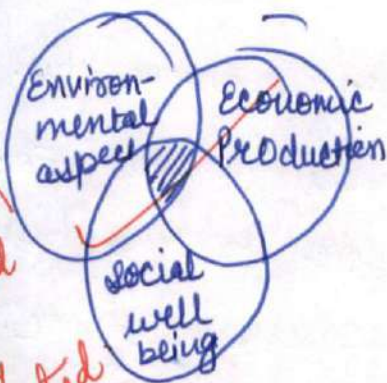 Environ-
mental
aspect
Economic
Production
Social
well
being